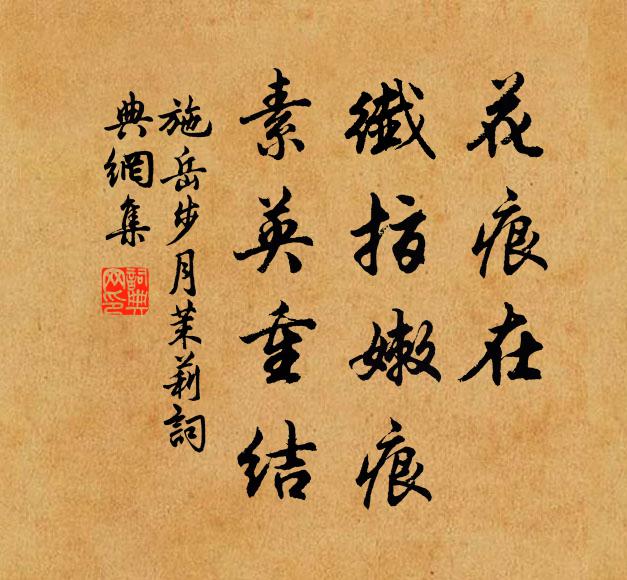 花痕在
纖指嫩痕
素英重结
施岳步月茉莉詞
典網集
詞典网印